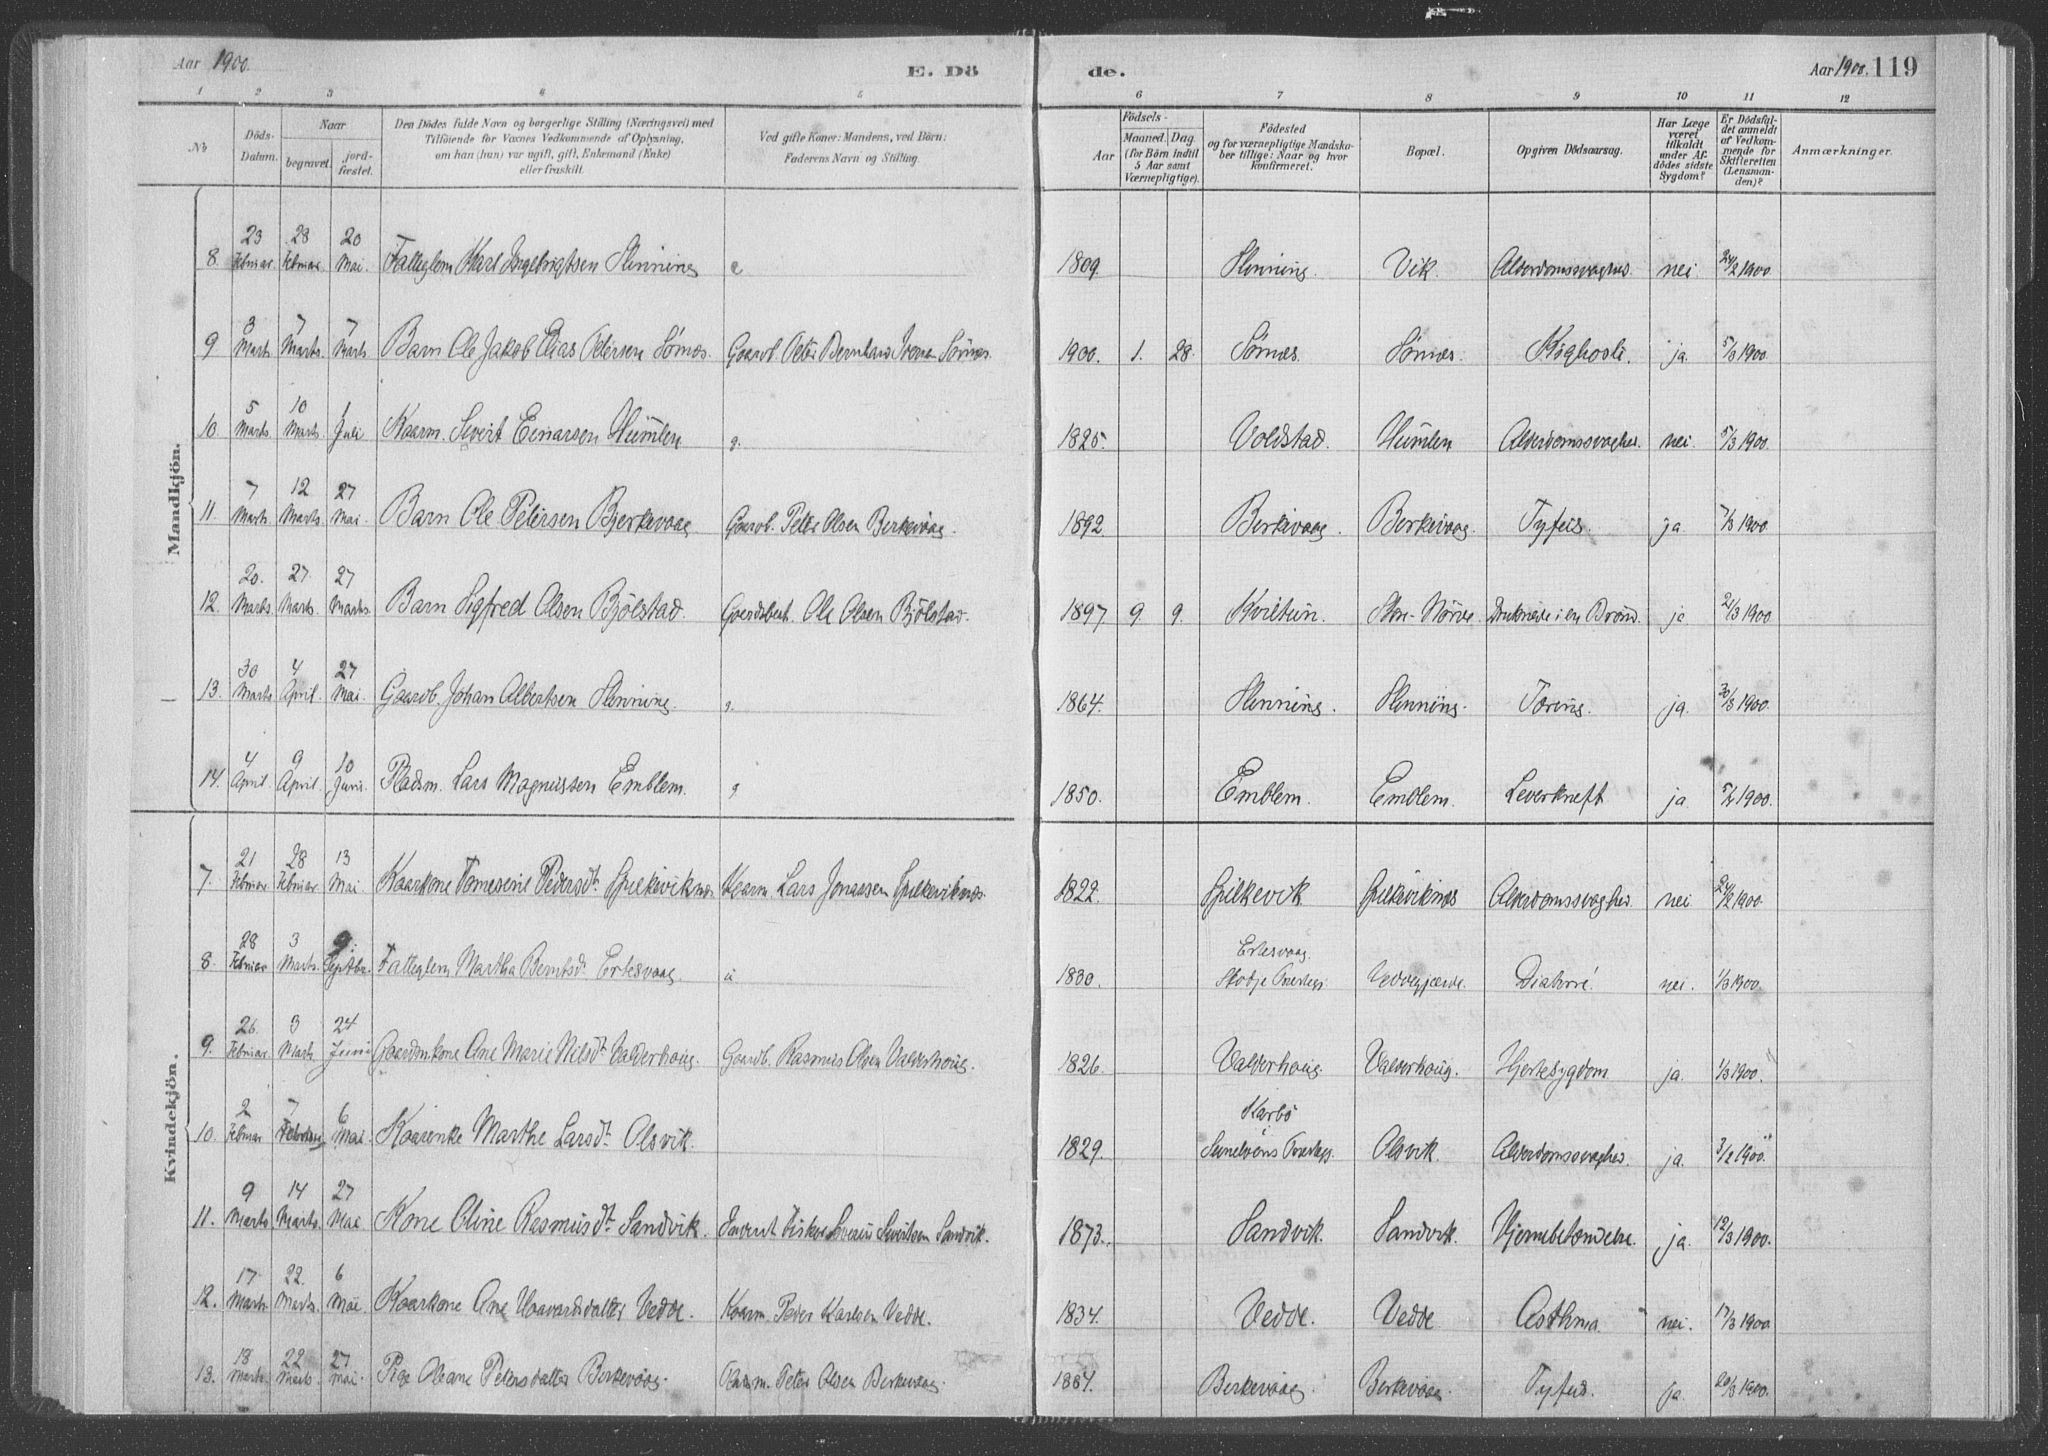 Aar 1900. E. Dö de. Aar 1900. 119
1 2 3 4 5 6 7 8 9 10 11 12
No.
Döds-Datum.
Naar
begravet.
jord-fæstet.
Den Dödes fulde Navn og borgerlige Stilling (Næringsvei) med
Tilföiende for Voxnes Vedkommende af Oplysning,
om han (hun) var ugift, gift, Enkemand (Enke)
eller fraskilt.
Ved gifte Koner: Mandens, ved Börn:
Faderens Navn og Stilling.
Födsels-
Aar
Maaned. Dag.
(for Börn indtil
5 Aar samt
Værnepligtige).
Födested
og for værnepligtige Mandska-
ber tillige: Naar og hvor
konfirmeret.
Bopæl.
Opgiven Dödsaarsag.
Har Læge
været
tilkaldt
under Af-
dödes sidste
Sygdom?
Er Dödsfal-
det anmeldt
af Vedkom-
mende for
Skifteretten
(Lensman-
den)?
Anmærkninger.
Mandkjön.
8. 23 Februar 28 Februar 20 Mai. Fattiglem Karl Ingebrigtsen Flinning e 1809. Flinning. Vik. Alderdomssvaghed. nei 24/2 1900
9 3 Marts 7 Marts. 7 Marts Barn Ole Jakob Elias Petersen Sørnæs. Gaardb. Peter Bernhard Iversen Sørnæs. 1900. 1. 28. Sørnæs. Sørnæs. Kighoste. ja. 5/3 1900.
10. 5 Marts. 10 Marts. 1 Juli Kaarm. Sivert Einarsen Humlen g. 1825. Voldstad. Humlen Alderdomssvaghed. nei. 5/3 1900.
11. 7 Marts 12 Marts. 27 Mai. Barn Ole Petersen Bjerkevaag Gaardb. Peter Olsen Berkevaag. 1892. Berkevaag. Berkevaag. Tyfus. ja. 7/3 1900.
12. 20. Marts. 27. Marts. 27 Marts. Barn Sigfred Olsen Bjölstad. Ole Olsen Bjölstad. 1897 9. 9. Kviltun. Nörve. Druknede i en Brönd. ja 21/3 1900
13. 30 Marts 4 April. 27 Mai. Gaardb. Johan Albertsen Flinning. g. 1864. Flinning. Flinning. Tæring. ja. 30/3 1900.
14. 4 April. 9 April. 10 Juni. Pladsm. Lars Magnussen Emblem. g 1850. Emblem. Emblem. Leverkræft ja 1900.
Kvindekjön.
7. 21 Februar 28 Februar 13 Mai Kaarkone Tomesine Pedersdt. Spilkeviknæs Kaarm. Lars Jonassen Spilkeviknæs. 1822. Spilkevik. Spilkeviknæs Alderdomssvaghed. nei 24/2 1900.
8. 28 Februar 3 Marts. 9. Septbr. Fattiglem Martha Berntsd. Ertesvaag u 1830. Ertesvaag Skodje Præstegj. Vedvegjærde. Diahrré. nei. 1/3 1900.
9. 26. Februar. 3 Marts 24 Juni Gaardmkone Ane Marie Nilsdt. Valderhoug. Gaardb. Rasmus Olsen Valderhoug. 1826. Valderhoug Valderhoug. Hjertesygdom ja. 1/3 1900.
10. 2 Februar 7 Februar 6 Mai Kaarenke Marthe Larsdt. Olsvik. 1829. Karbö Sunelvens Præstegj. Olsvik. Alderdomssvaghed. ja. 3/2 1900.
11. 9 Marts. 14 Marts. 27 Mai Kone Oline Rasmusdt. Sandvik. Inderst Fisker Severin Sivertsen Sandvik. 1873. Sandvik. Sandvik. Hjernebetændelse. ja. 12/3 1900.
12. 17 Marts 22. Marts. 6 Mai Kaarkone Ane Haavardsdatter Vedde. Kaarm. Peder Karlsen Vedde. 1834. Vedde. Vedde Asthma. nei. 17/3 1900
13. 18 Marts. 22 Marts. 27 Mai. Pige Oleane Petersdatter Berkevaag. Peter Olsen Berkevaag. 1884. Berkevaag. Berkevaag. Tyfus. ja. 20/3 1900.